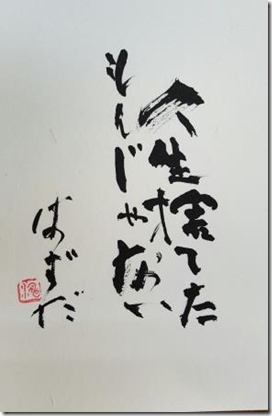 人生捨てた
もんじゃない
はずだ